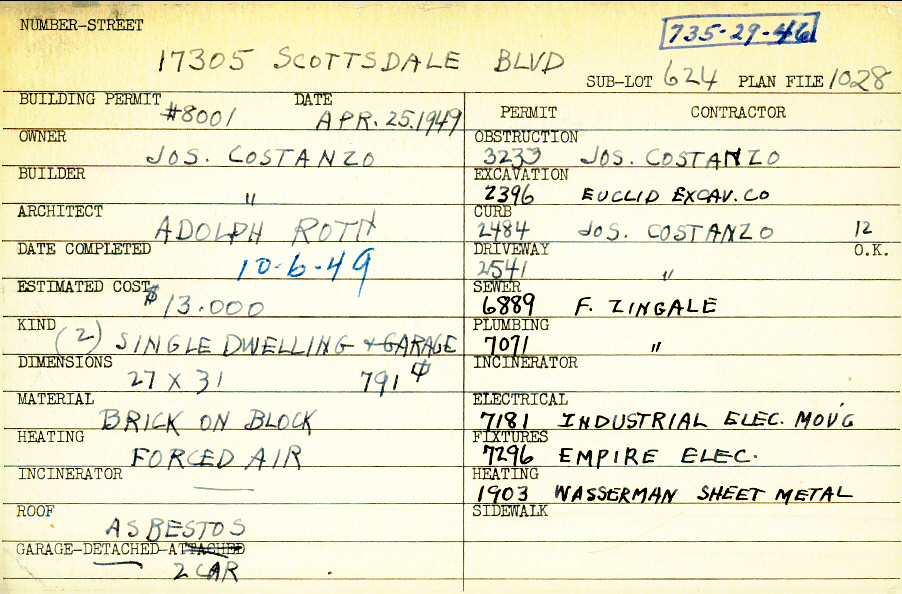 NUMBER-STREET
735-29-46
17305 SCOTTSDALE BLVD
SUB-LOT 624 PLAN FILE 1028
BUILDING PERMIT #8001 DATE APR. 25. 1949
OWNER JOS. COSTANZO
BUILDER "
ARCHITECT ADOLPH ROTH
DATE COMPLETED 10-6-49
ESTIMATED COST $13.000
KIND (2) SINGLE DWELLING + GARAGE
DIMENSIONS 27 X 31 791
MATERIAL BRICK ON BLOCK
HEATING FORCED AIR
INCINERATOR —
ROOF ASBESTOS
GARAGE-DETACHED-ATTACHED
2 CAR
PERMIT CONTRACTOR
OBSTRUCTION
3233 JOS. COSTANZO
EXCAVATION
2396 EUCLID EXCAV. CO
CURB
2484 JOS. COSTANZO 12
DRIVEWAY O.K.
2541 "
SEWER
6889 F. ZINGALE
PLUMBING
7071 "
INCINERATOR
ELECTRICAL
7181 INDUSTRIAL ELEC. MOV'G
FIXTURES
7296 EMPIRE ELEC.
HEATING
1903 WASSERMAN SHEET METAL
SIDEWALK